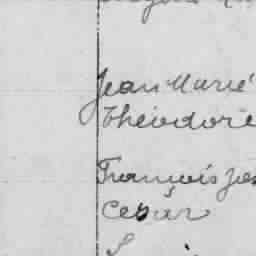 Jean Marie
Théodore
François Jos
César